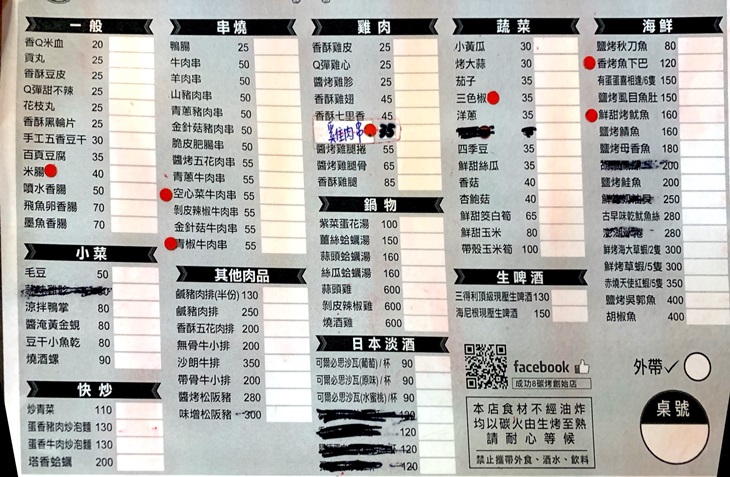 一般
香Q米血 20
貢丸 25
香酥豆皮 25
Q彈甜不辣 25
花枝丸 25
香酥黑輪片 25
手工五香豆干 30
百頁豆腐 35
米腸 40
噴水香腸 50
飛魚卵香腸 70
墨魚香腸 70
小菜
毛豆 50
80
涼拌鴨掌 80
醬淹黃金蜆 80
豆干小魚乾 80
燒酒螺 90
快炒
炒青菜 110
蛋香豬肉炒泡麵 130
蛋香牛肉炒泡麵 130
塔香蛤蠣 200
串燒
鴨腸 25
牛肉串 50
羊肉串 50
山豬肉串 50
青蔥豬肉串 50
金針菇豬肉串 50
脆皮肥腸串 50
醬烤五花肉串 55
青蔥牛肉串 55
空心菜牛肉串 55
剝皮辣椒牛肉串 55
金針菇牛肉串 55
青椒牛肉串 55
其他肉品
鹹豬肉排(半份) 130
鹹豬肉排 250
香酥五花肉排 200
無骨牛小排 200
沙朗牛排 350
帶骨牛小排 200
醬烤松阪豬 280
味增松阪豬 300
雞肉
香酥雞皮 25
Q彈雞心 25
醬烤雞胗 25
香酥雞翅 45
香酥七里香 45
雞肉串 35
醬烤雞腿捲 55
醬烤雞腿骨 65
香酥雞腿 85
鍋物
紫菜蛋花湯 100
薑絲蛤蠣湯 150
蒜頭蛤蠣湯 160
絲瓜蛤蠣湯 160
蒜頭雞 600
剝皮辣椒雞 600
燒酒雞 600
日本淡酒
可爾必思沙瓦(葡萄)/杯 90
可爾必思沙瓦(原味)/杯 90
可爾必思沙瓦(水蜜桃)/杯 90
120
120
120
120
蔬菜
小黃瓜 30
烤大蒜 30
茄子 35
三色椒 35
洋蔥 35
四季豆 35
鮮甜絲瓜 35
香菇 40
杏鮑菇 40
鮮甜茭白筍 65
鮮甜玉米 80
帶殼玉米筍 100
生啤酒
三得利頂級現壓生啤酒 130
海尼根現壓生啤酒 150
facebook
成功8碳烤創始店
本店食材不經油炸
均以碳火由生烤至熟
請耐心等候
禁止攜帶外食、酒水、飲料
海鮮
鹽烤秋刀魚 80
香烤魚下巴 120
有蛋蛋喜相逢/6隻 150
鹽烤虱目魚肚 150
鮮甜烤魷魚 160
鹽烤鯖魚 160
鹽烤母香魚 180
200
鹽烤鮭魚 200
250
古早味乾魷魚絲 280
280
鮮烤海大草蝦/2隻 300
鮮烤草蝦/5隻 300
赤燒天使紅蝦/5隻 350
鹽烤吳郭魚 400
胡椒魚 400
外帶
桌號